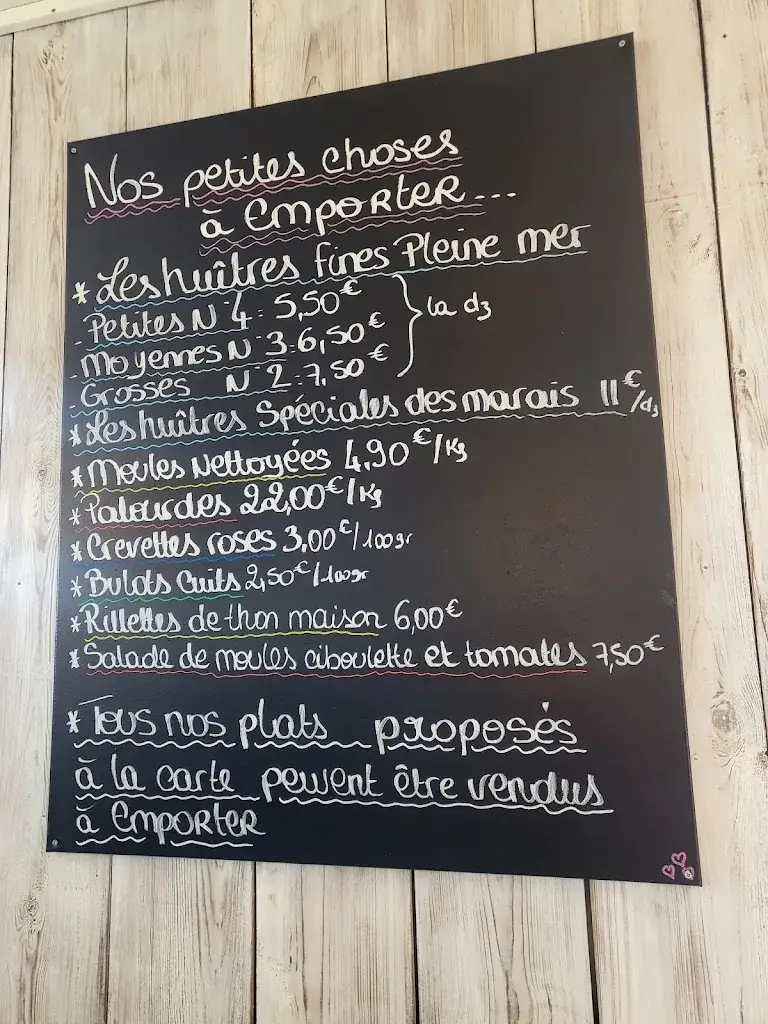 Nos petites choses
à Emporter...
* Les huîtres fines Pleine mer
- Petites N 4 : 5,50€
- Moyennes N 3 : 6,50€ } la dz
- Grosses N 2 : 7,50€
* Les huîtres Spéciales des marais 11€/dz
* Moules Nettoyées 4,90€/Kg
* Palourdes 22,00€/Kg
* Crevettes roses 3,00€/100gr
* Bulots Cuits 2,50€/100gr
* Rillettes de thon maison 6,00€
* Salade de moules ciboulette et tomates 7,50€
* Tous nos plats proposés
à la carte peuvent être vendus
à Emporter